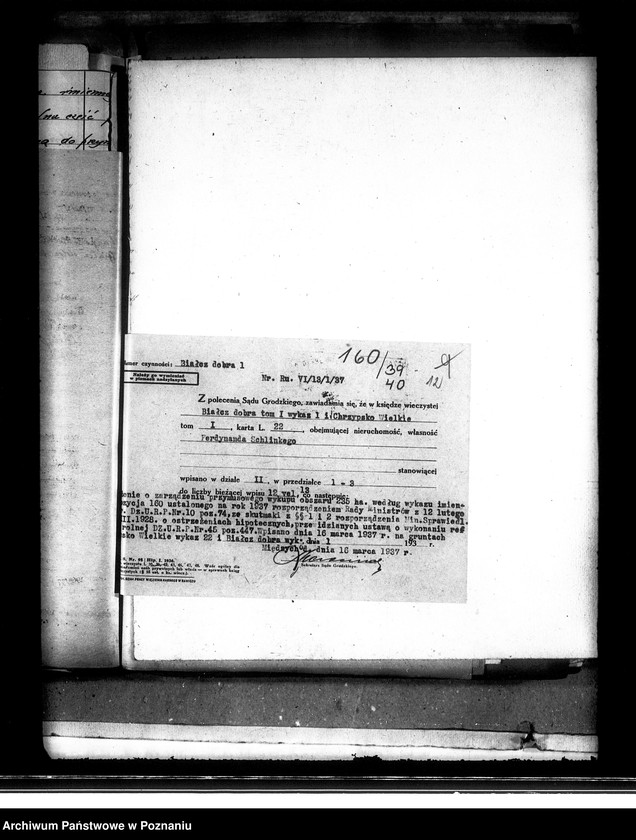 imienn
lna część
do przym
umer czynności: Białcz dobra 1
Należy go wymieniać
w pismach nadsyłanych
160/39
40
12
Nr. Ru. VI/13/1/37
Z polecenia Sądu Grodzkiego, zawiadamia się, że w księdze wieczystej
Białcz dobra tom I wykaz 1 i Chrzypsko Wielkie
tom I , karta L. 22 , obejmującej nieruchomość, własność
Ferdynanda Schlinkego
stanowiącej
wpisano w dziale II , w przedziałce 1 - 3
do liczby bieżącej wpisu 12 wzl. 13 co następuje:
enie o zarządzeniu przymusowego wykupu obszaru 235 ha. według wykazu imien-
ycja 160 ustalonego na rok 1937 rozporządzeniem Rady Ministrów z 12 lutego
Dz.U.R.P.Nr.10 poz.74, ze skutkami z §§ 1 i 2 rozporządzenia Min.Sprawiedl.
II.1928. o ostrzeżeniach hipotecznych, przewidzianych ustawą o wykonaniu ref
rolnej DZ.U.R.P.Nr.45 poz.447. Wpisano dnia 16 marca 1937 r. na gruntach
sko Wielkie wykaz 22 i Białcz dobra wyk. 1
dnia 193 r.
Międzychód, dnia 16 marca 1937 r.
Sekretarz Sądu Grodzkiego.
Archiwum Państwowe w Poznaniu